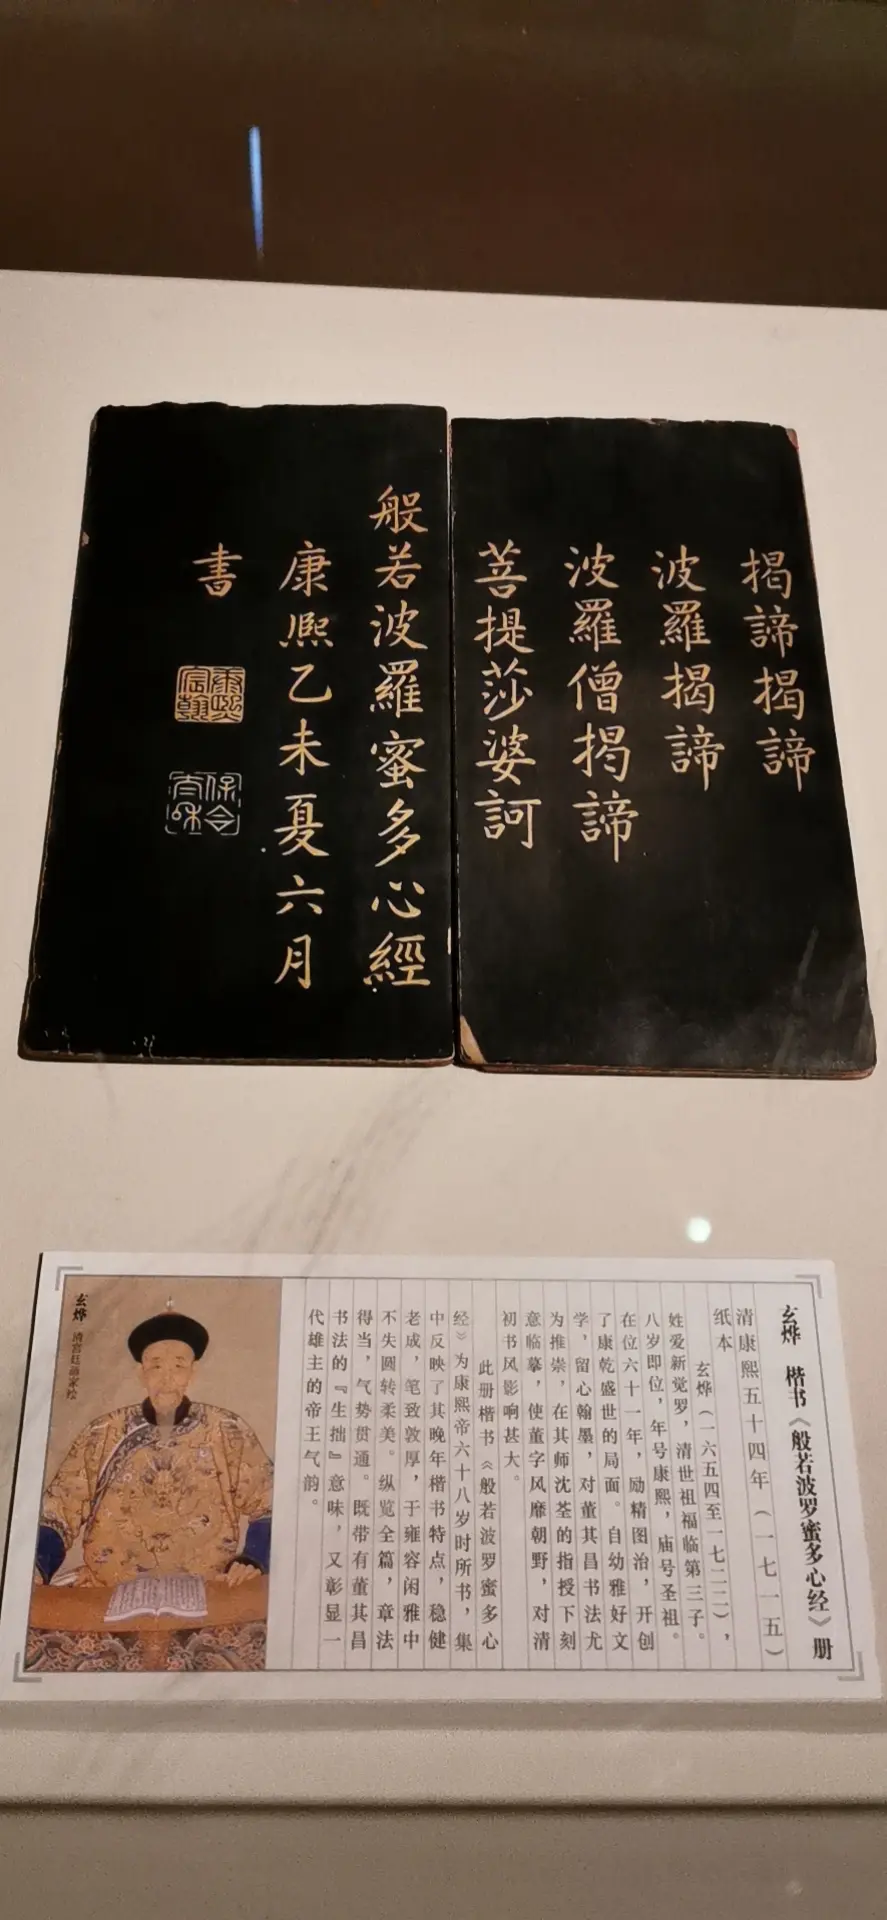 揭諦揭諦
波羅揭諦
波羅僧揭諦
菩提莎婆訶
般若波羅蜜多心經
康熙乙未夏六月
書
康熙宸翰
保合太和
玄烨 楷书《般若波罗蜜多心经》册
清康熙五十四年（一七一五）
纸本
玄烨（一六五四至一七二二），
姓爱新觉罗，清世祖福临第三子。
八岁即位，年号康熙，庙号圣祖。
在位六十一年，励精图治，开创
了康乾盛世的局面。自幼雅好文
学，留心翰墨，对董其昌书法尤
为推崇，在其师沈荃的指授下刻
意临摹，使董字风靡朝野，对清
初书风影响甚大。
此册楷书《般若波罗蜜多心
经》为康熙帝六十八岁时所书，集
中反映了其晚年楷书特点，稳健
老成，笔致敦厚，于雍容闲雅中
不失圆转柔美。纵览全篇，章法
得当，气势贯通。既带有董其昌
书法的『生拙』意味，又彰显一
代雄主的帝王气韵。
玄烨 清宫廷画家绘